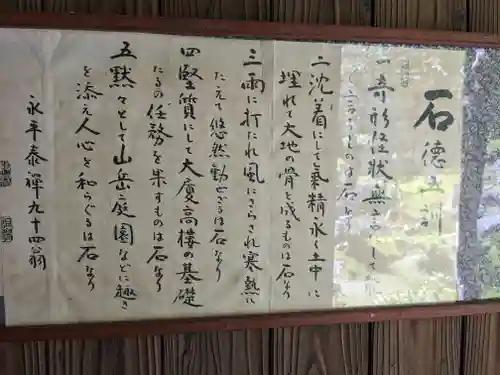 石德五訓
一奇形怪狀無言にして
言うものは石なり
二沈着にして氣精永く土中に
埋れて大地の骨と成るものは石なり
三雨に打たれ風にさらされ寒熱に
たえて悠然動ぜざるは石なり
四堅質にして大廈高樓の基礎
たるの任務を果すものは石なり
五黙々として山岳庭園などに趣き
を添え人心を和らぐるは石なり
永平泰禪九十四翁